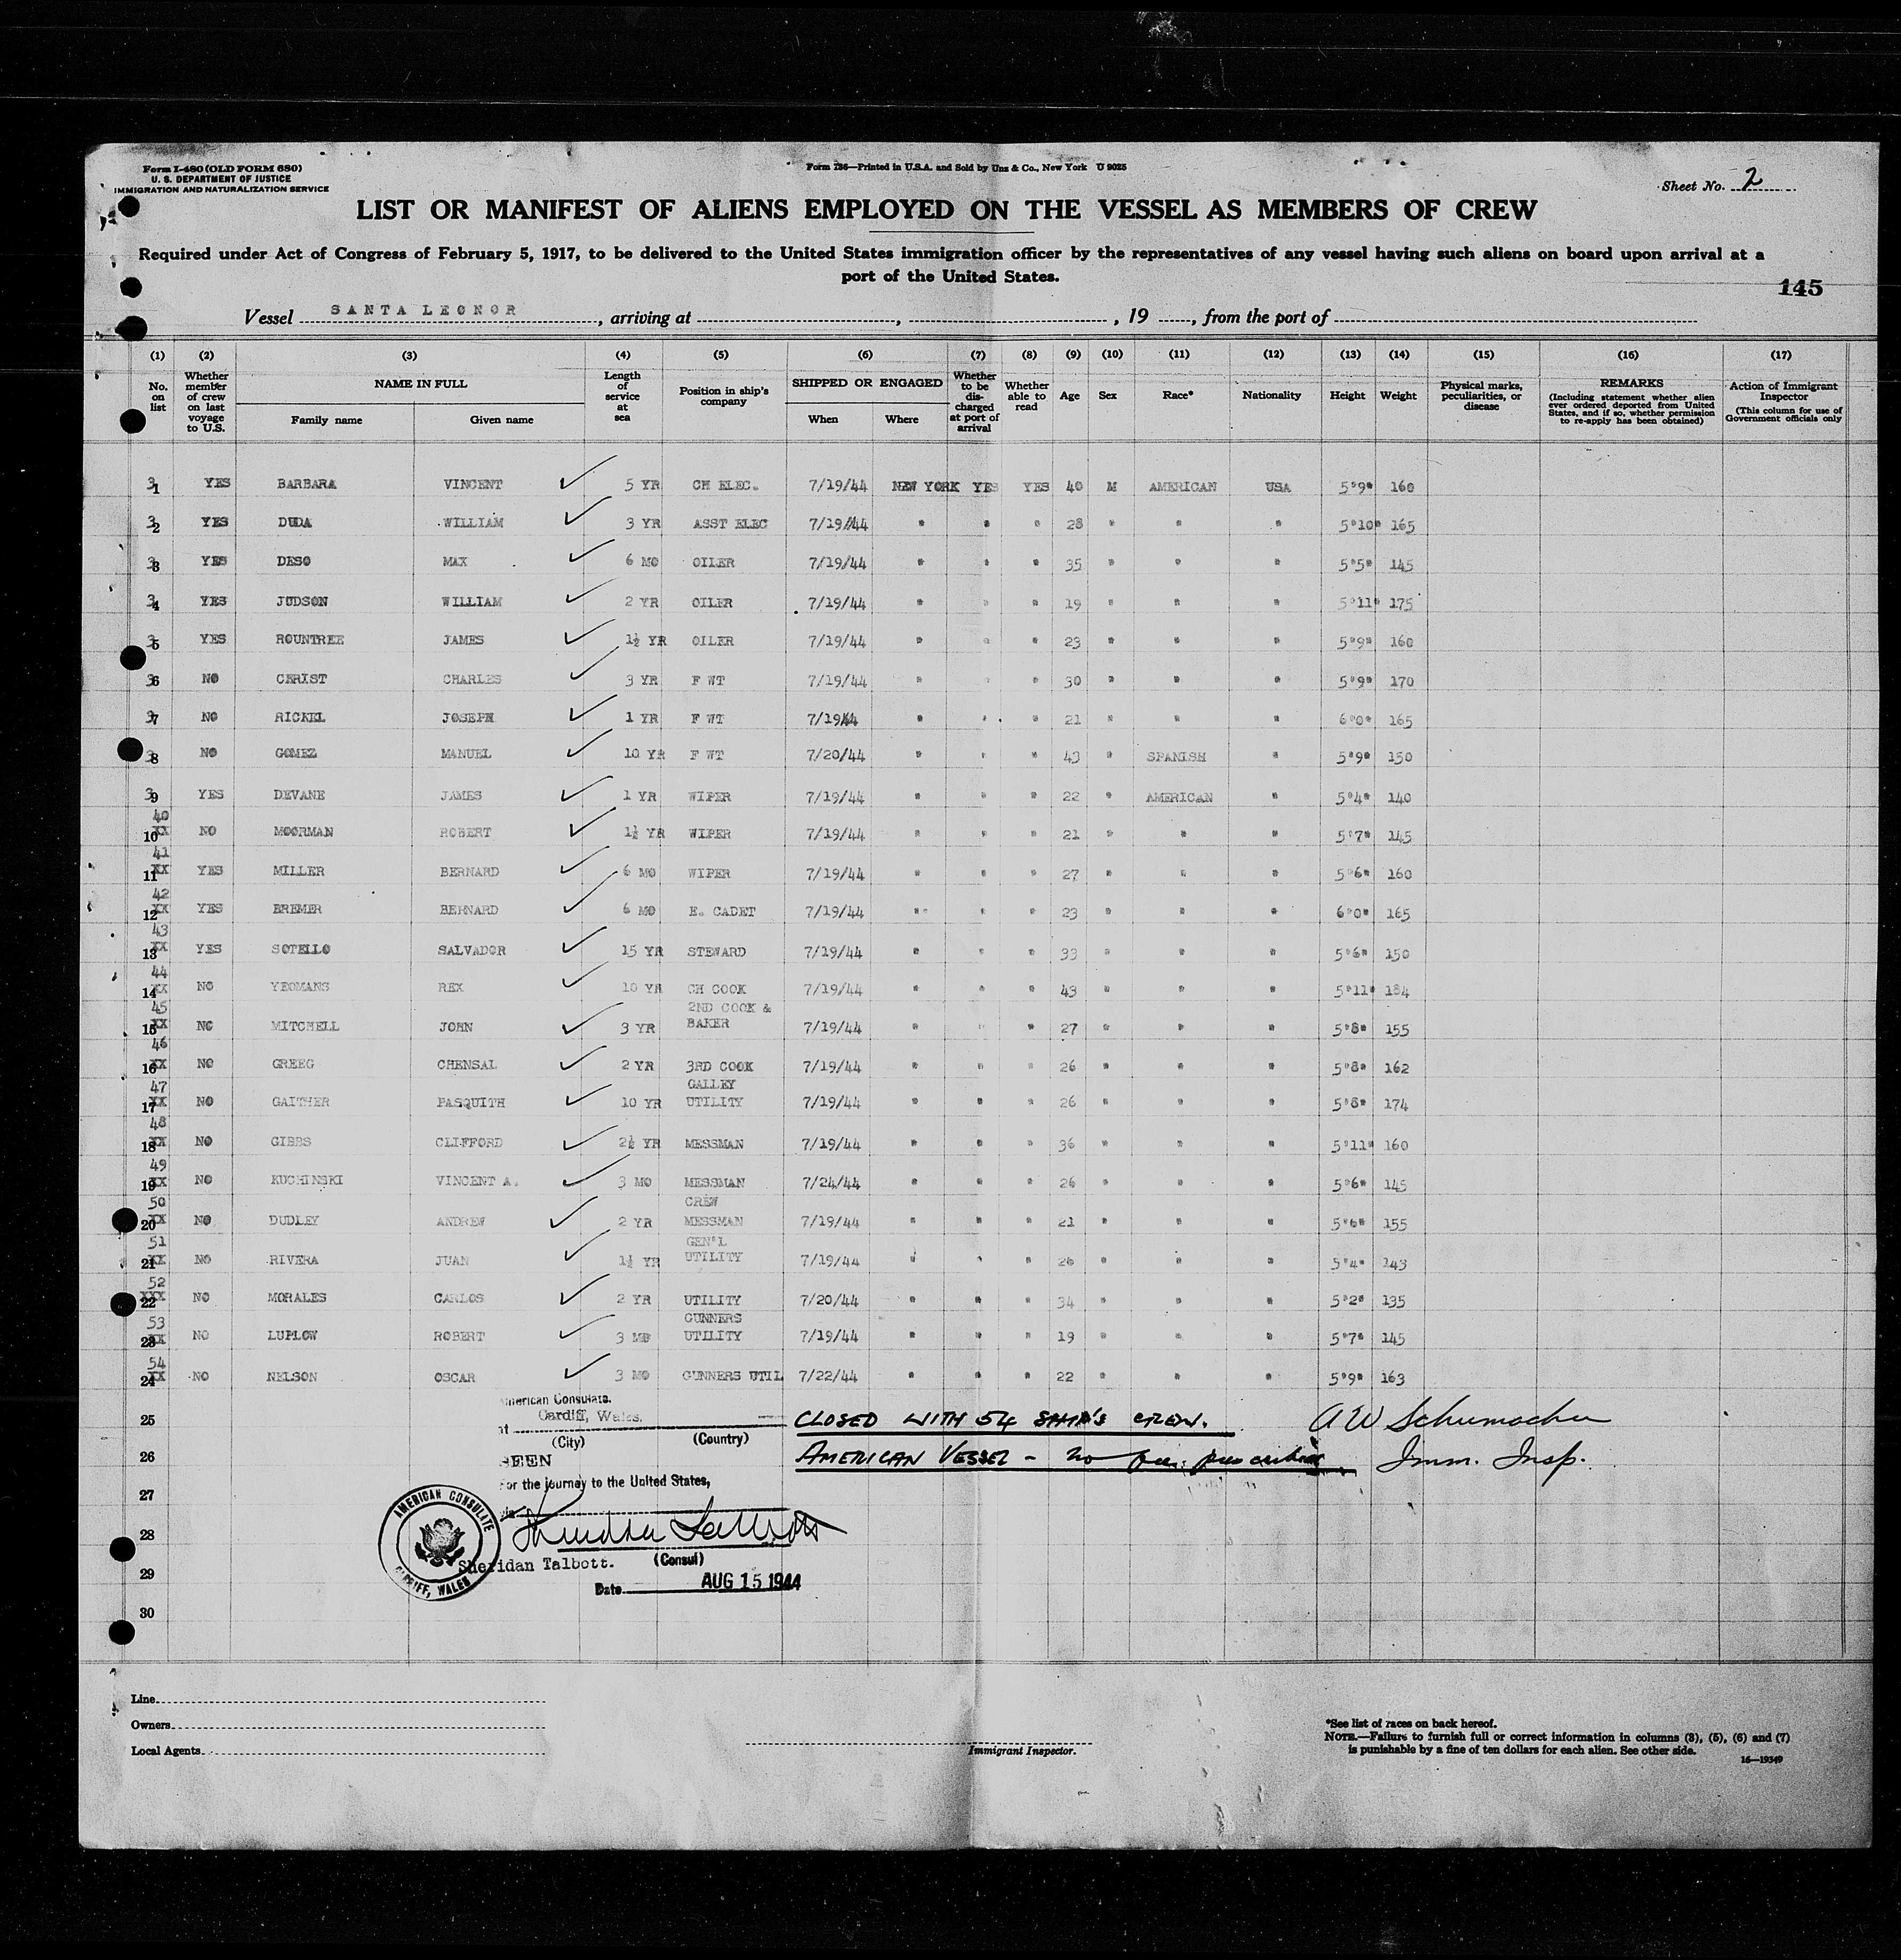 Form I-480 (OLD FORM 680)
U. S. DEPARTMENT OF JUSTICE
IMMIGRATION AND NATURALIZATION SERVICE
Form 136—Printed in U.S.A. and Sold by Unz & Co., New York U 9025
Sheet No. 2
LIST OR MANIFEST OF ALIENS EMPLOYED ON THE VESSEL AS MEMBERS OF CREW
Required under Act of Congress of February 5, 1917, to be delivered to the United States immigration officer by the representatives of any vessel having such aliens on board upon arrival at a
port of the United States.
145
Vessel SANTA LEONOR, arriving at , , 19 , from the port of
(1) (2) (3) (4) (5) (6) (7) (8) (9) (10) (11) (12) (13) (14) (15) (16) (17)
No. on list
Whether member of crew on last voyage to U.S.
NAME IN FULL
Family name Given name
Length of service at sea
Position in ship's company
SHIPPED OR ENGAGED
When Where
Whether to be discharged at port of arrival
Whether able to read
Age Sex Race* Nationality Height Weight
Physical marks, peculiarities, or disease
REMARKS
(Including statement whether alien ever ordered deported from United States, and if so, whether permission to re-apply has been obtained)
Action of Immigrant Inspector
(This column for use of Government officials only
31 YES BARBARA VINCENT 5 YR CH ELEC. 7/19/44 NEW YORK YES YES 40 M AMERICAN USA 5'9" 160
32 YES DUDA WILLIAM 3 YR ASST ELEC 7/19/44 " " " 28 " " " 5'10" 165
33 YES DESO MAX 6 MO OILER 7/19/44 " " " 35 " " " 5'5" 145
34 YES JUDSON WILLIAM 2 YR OILER 7/19/44 " " " 19 " " " 5'11" 175
35 YES ROUNTREE JAMES 1½ YR OILER 7/19/44 " " " 23 " " " 5'9" 160
36 NO CHRIST CHARLES 3 YR F WT 7/19/44 " " " 30 " " " 5'9" 170
37 NO RICKEL JOSEPH 1 YR F WT 7/19/44 " " " 21 " " " 6'0" 165
38 NO GOMEZ MANUEL 10 YR F WT 7/20/44 " " " 43 " SPANISH " 5'9" 150
39 YES DEVANE JAMES 1 YR WIPER 7/19/44 " " " 22 " AMERICAN " 5'4" 140
40 10 NO MOORMAN ROBERT 1½ YR WIPER 7/19/44 " " " 21 " " " 5'7" 145
41 11 YES MILLER BERNARD 6 MO WIPER 7/19/44 " " " 27 " " " 5'6" 160
42 12 YES BREMER BERNARD 6 MO E. CADET 7/19/44 " " " 23 " " " 6'0" 165
43 13 YES SOTELLO SALVADOR 15 YR STEWARD 7/19/44 " " " 33 " " " 5'6" 150
44 14 NO YEOMANS REX 10 YR CH COOK 7/19/44 " " " 43 " " " 5'11" 184
45 15 NO MITCHELL JOHN 3 YR 2ND COOK & BAKER 7/19/44 " " " 27 " " " 5'8" 155
46 16 NO GREEG CHENSAL 2 YR 3RD COOK 7/19/44 " " " 26 " " " 5'8" 162
47 17 NO GAITHER PASQUITH 10 YR GALLEY UTILITY 7/19/44 " " " 26 " " " 5'8" 174
48 18 NO GIBBS CLIFFORD 2½ YR MESSMAN 7/19/44 " " " 36 " " " 5'11" 160
49 19 NO KUCHINSKI VINCENT A. 3 MO MESSMAN 7/24/44 " " " 26 " " " 5'6" 145
50 20 NO DUDLEY ANDREW 2 YR CREW MESSMAN 7/19/44 " " " 21 " " " 5'6" 155
51 21 NO RIVERA JUAN 1½ YR GEN'L UTILITY 7/19/44 " " " 26 " " " 5'4" 143
52 22 NO MORALES CARLOS 2 YR UTILITY 7/20/44 " " " 34 " " " 5'2" 135
53 23 NO LUPLOW ROBERT 3 MO GUNNERS UTILITY 7/19/44 " " " 19 " " " 5'7" 145
54 24 NO NELSON OSCAR 3 MO GUNNERS UTIL 7/22/44 " " " 22 " " " 5'9" 163
American Consulate.
25 at Cardiff, Wales. CLOSED WITH 54 SHIP'S CREW. A W Schumacher
(City) (Country)
26 SEEN AMERICAN VESSEL - no Imm. Insp.
For the journey to the United States,
27
28
AMERICAN CONSULATE
CARDIFF, WALES
Sheridan Talbott. (Consul)
29
Date AUG 15 1944
30
Line
Owners
Local Agents
Immigrant Inspector.
*See list of races on back hereof.
NOTE.—Failure to furnish full or correct information in columns (3), (5), (6) and (7)
is punishable by a fine of ten dollars for each alien. See other side.
16—19349